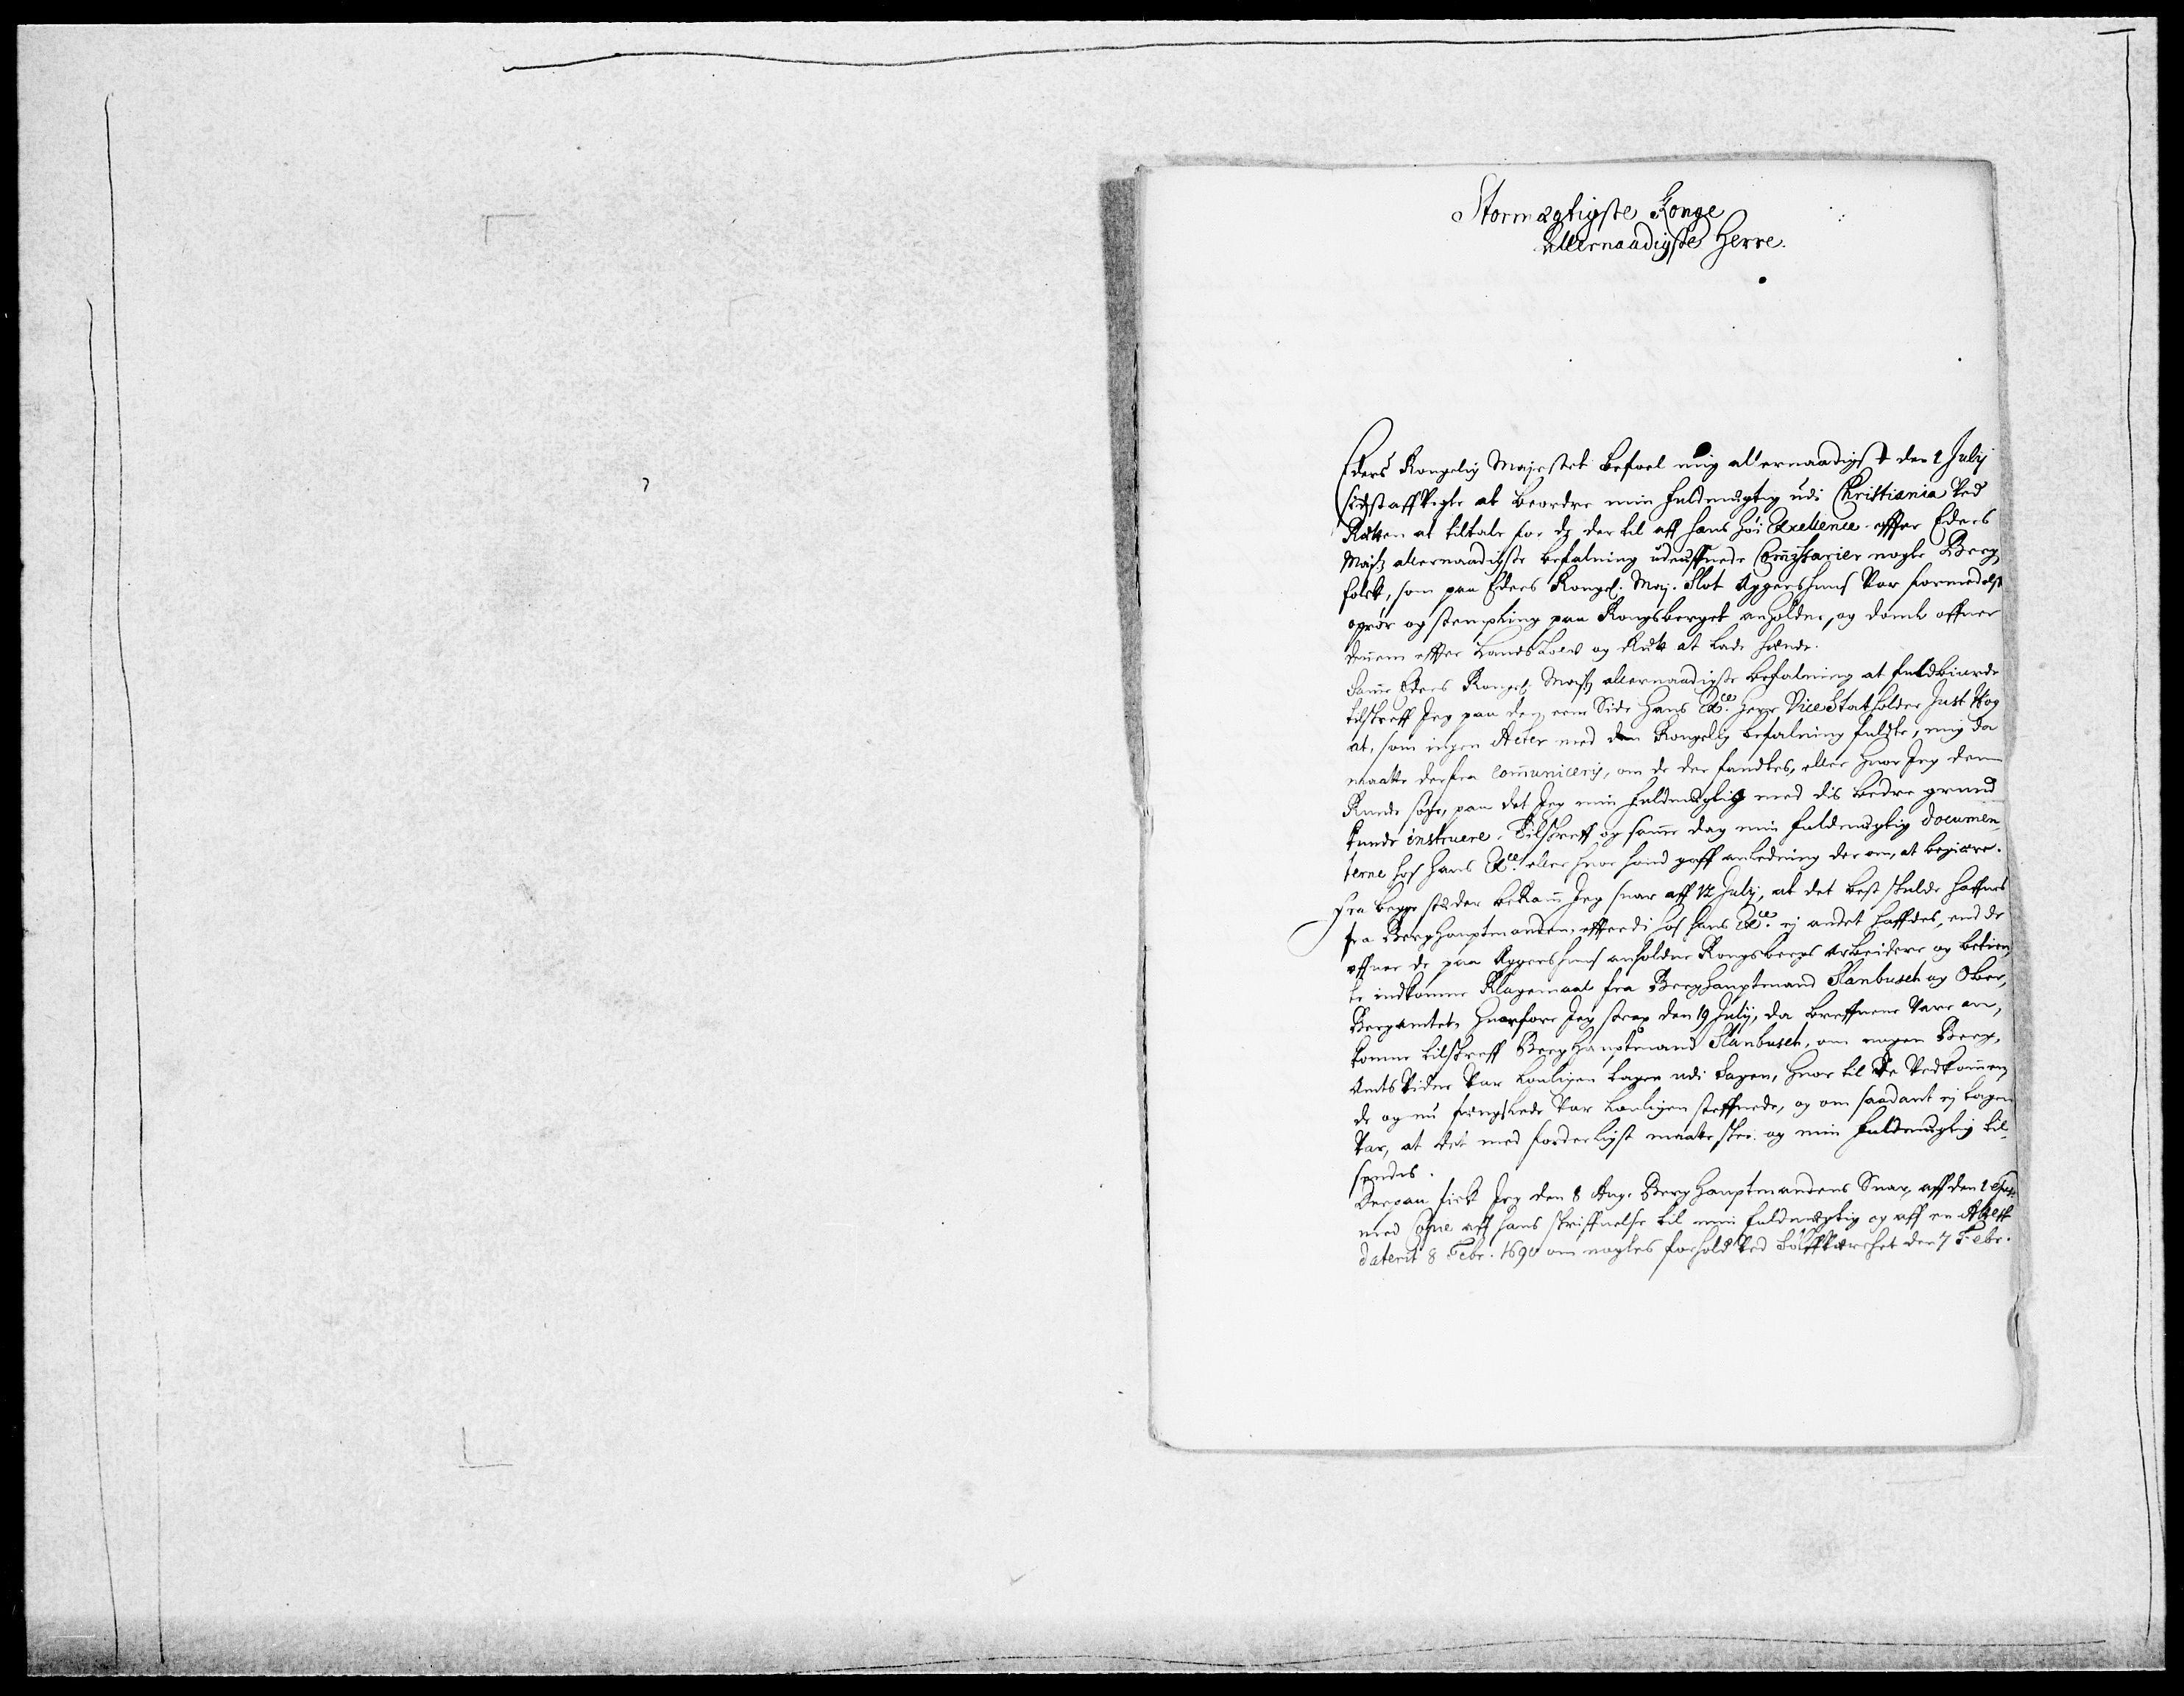 Stormægtigste Konge
Allernaadigste Herre.
Eders Kongelig Majestet befoel mig allernaadigst den 1 Julij
sidstaffvigte at beordre min fuldmegtig udi Christiania ved
Retten at tiltale for de der til aff hans høi Excellence effter Eders
Majts allernaadigste befalning udnæffnede Commissarier nogle Berg,
folck, som paa Eders Kongel. Maj. Slot Aggershuus var formedelst
oprør og stempling paa Kongsberget anholdne, og domb offuer
dennem effter Lands Lov og Rett at lade hænde.
Samme Eders Kongel. Majts allernaadigste befalning at fuldbiurde
tilskreff Jeg paa den eene Side Hans Exce. Herr Vice Statholder Just Høg
at, som ingen Acter med den Kongelig befalning fuldte, mig da
maatte derfra communiceris, om de der fandtes, eller huor Jeg dem
kunde søge, paa det Jeg min fuldmegtig med dis bedre grund
kunde instruere. Tilskreff og samme dag min fuldmegtig documen,
terne hos hans Exce. eller huor hand gaff anledning der om, at begiære.
Fra begge stæder bekam Jeg suar aff 12 Julij, at det best skulde haffues
fra Berghauptmanden, efftterdi hos hans Exce. ej andet haffdes, end de
offuer de paa Aggershuus anholdne Kongsbergs Arbeidere og betien,
te indkomne Klagemaal fra Berghauptmand Slanbusch og Ober,
Bergamtet, Huorfore Jeg strax den 19 Julij, da breffuene vare an,
komne tilskreff Berghauptmand Slanbusch, om nogen Berg,
Amts vidne var lovligen tagen udi Sagen, huor til de vedkommen,
de og nu fængslede var lovligen steffnede, og om saadant ej tagen
var, at det med forderligst maatte skee og min fuldmegtig til,
sendes.
Derpaa fick Jeg den 8 Aug. Berg Hauptmandens Suar, aff den 1
med Copie aff hans skriffuelse til min fuldmegtig og aff en Attest
daterit 8 Febr. 1690 om nogles forhold ved Sølffverchet den 7 Febr.